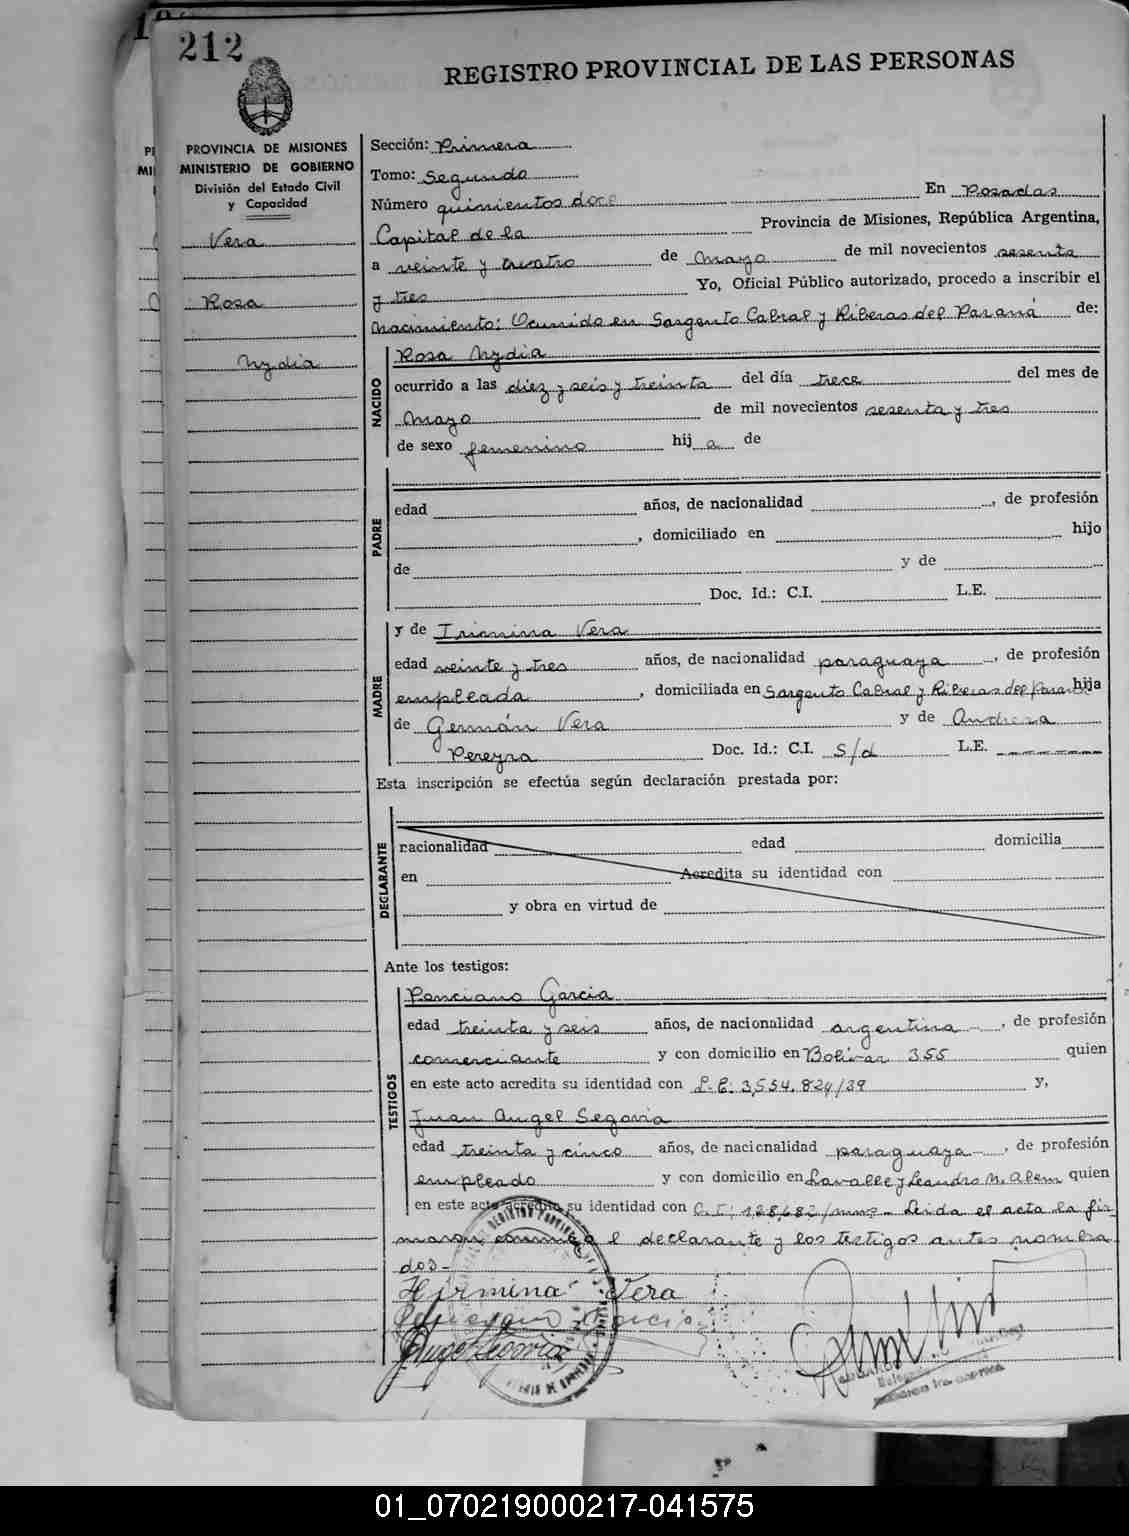 212
REGISTRO PROVINCIAL DE LAS PERSONAS
PROVINCIA DE MISIONES
MINISTERIO DE GOBIERNO
División del Estado Civil
y Capacidad
Vera
Rosa
Nydia
Sección: Primera
Tomo: Segundo
Número quinientos doce En Posadas
Capital de la Provincia de Misiones, República Argentina,
a veinte y cuatro de Mayo de mil novecientos sesenta
y tres Yo, Oficial Público autorizado, procedo a inscribir el
Nacimiento: Ocurrido en Sargento Cabral y Riberas del Paraná de:
NACIDO
Rosa Nydia
ocurrido a las diez y seis y treinta del día trece del mes de
Mayo de mil novecientos sesenta y tres
de sexo femenino hij a de
PADRE
edad años, de nacionalidad , de profesión
, domiciliado en hijo
de y de
Doc. Id.: C.I. L.E.
MADRE
y de Irimina Vera
edad veinte y tres años, de nacionalidad paraguaya , de profesión
empleada , domiciliada en Sargento Cabral y Riberas del Paraná hija
de Germán Vera y de Andreza
Pereyra Doc. Id.: C.I. S/d L.E.
Esta inscripción se efectúa según declaración prestada por:
DECLARANTE
nacionalidad edad domicilia
en Acredita su identidad con
y obra en virtud de
Ante los testigos:
TESTIGOS
Ponciano Garcia
edad treinta y seis años, de nacionalidad argentina , de profesión
comerciante y con domicilio en Bolívar 355 quien
en este acto acredita su identidad con L.E. 3.554.824/39 y,
Juan Angel Segovia
edad treinta y cinco años, de nacionalidad paraguaya , de profesión
empleado y con domicilio en Lavalle y Leandro N. Alem quien
en este acto acredita su identidad con C.I: 128682/mnes - Leida el acta la fir
maron conmigo el declarante y los testigos antes nombra
dos-
Hirmina Vera
Garcia
Angel Segovia
01_070219000217-041575